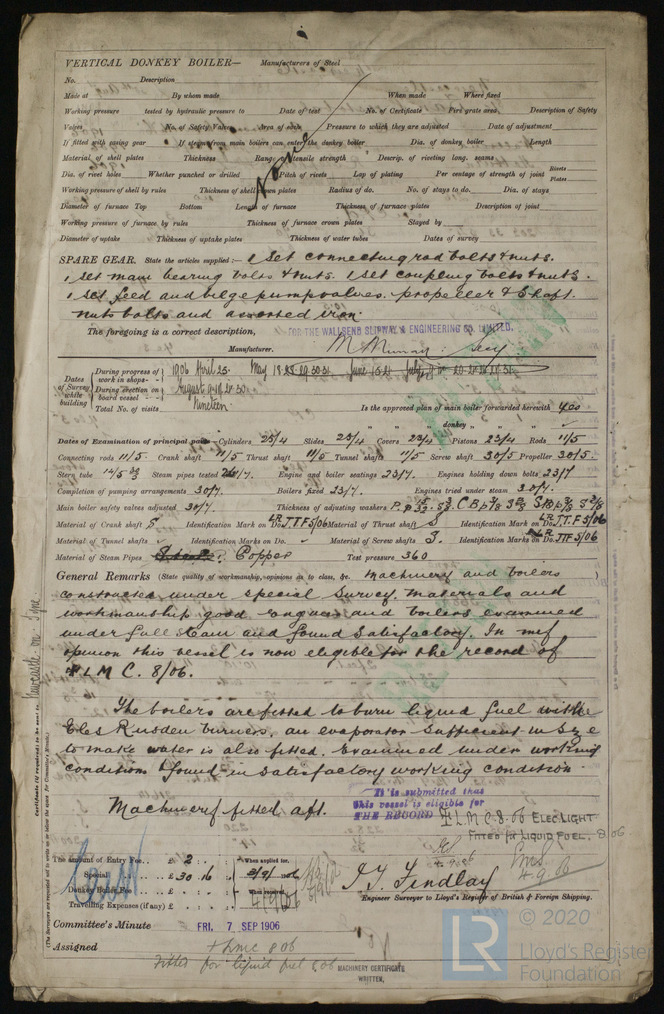 VERTICAL DONKEY BOILER— Manufacturers of Steel
No. Description
Made at By whom made When made Where fixed
Working pressure tested by hydraulic pressure to Date of test No. of Certificate Fire grate area Description of Safety
Valves No. of Safety Valves Area of each Pressure to which they are adjusted Date of adjustment
If fitted with easing gear If steam from main boilers can enter the donkey boiler Dia. of donkey boiler Length
Material of shell plates Thickness Range of tensile strength Descrip. of riveting long. seams
Dia. of rivet holes Whether punched or drilled Pitch of rivets Lap of plating Per centage of strength of joint Rivets Plates
Working pressure of shell by rules Thickness of shell crown plates Radius of do. No. of stays to do. Dia. of stays
Diameter of furnace Top Bottom Length of furnace Thickness of furnace plates Description of joint
Working pressure of furnace by rules Thickness of furnace crown plates Stayed by
Diameter of uptake Thickness of uptake plates Thickness of water tubes Dates of survey
None
SPARE GEAR. State the articles supplied:— 1 Set connecting rod bolts & nuts.
1 set main bearing bolts & nuts. 1 set coupling bolts & nuts.
1 set feed and bilge pump valves. propeller & shaft.
nuts bolts and assorted iron.
The foregoing is a correct description, FOR THE WALLSEND SLIPWAY & ENGINEERING CO. LIMITED.
Manufacturer. M Murray Secy
Dates of Survey while building
During progress of work in shops - - 1906 April 25. May 18.
During erection on board vessel - - - August
Total No. of visits Nineteen Is the approved plan of main boiler forwarded herewith yes
" " " donkey " " "
Dates of Examination of principal parts—Cylinders 23/4 Slides 23/4 Covers 23/4 Pistons 23/4 Rods 11/5
Connecting rods 11/5. Crank shaft 11/5 Thrust shaft 11/5 Tunnel shafts 11/5 Screw shaft 30/5 Propeller 30/5.
Stern tube 14/5 Steam pipes tested Engine and boiler seatings 23/7. Engines holding down bolts 23/7
Completion of pumping arrangements 30/7. Boilers fixed 23/7. Engines tried under steam 30/7.
Main boiler safety valves adjusted 30/7. Thickness of adjusting washers
Material of Crank shaft S Identification Mark on Do. J.T.F 5/06 Material of Thrust shaft S Identification Mark on Do. J.T.F 5/06
Material of Tunnel shafts Identification Marks on Do. Material of Screw shafts S. Identification Marks on Do. JTF 5/06
Material of Steam Pipes Copper Test pressure 360
General Remarks (State quality of workmanship, opinions as to class, &c. Machinery and boilers
constructed under special survey, materials and
workmanship good Engines and boilers examined
under full steam and found satisfactory. In my
opinion this vessel is now eligible for the record of
+ L M C. 8/06.
The boilers are fitted to burn liquid fuel with the
Eles Rusden burners, an evaporator sufficient in size
to make water is also fitted. Examined under working
conditions & found in satisfactory working condition.
Machinery fitted aft.
It is submitted that
this vessel is eligible for
THE RECORD + L M C 8.06 ELEC LIGHT
FITTED FOR LIQUID FUEL. 8 06
4.9.06
The amount of Entry Fee. . £ 2 : : When applied for,
Special . . . £ 30 . 16 :
Donkey Boiler Fee . . . £ : : When received,
Travelling Expenses (if any) £ : : 4/9/06
J T Findlay
Engineer Surveyor to Lloyd's Register of British & Foreign Shipping.
Committee's Minute FRI. 7 SEP 1906
Assigned + LMC 8 06
Fitted for liquid fuel 8,06
MACHINERY CERTIFICATE
WRITTEN.
Newcastle on Tyne
Certificate (if required) to be sent to
(The Surveyors are requested not to write on or below the space for Committee's Minute.)
LR © 2020
Lloyd's Register
Foundation